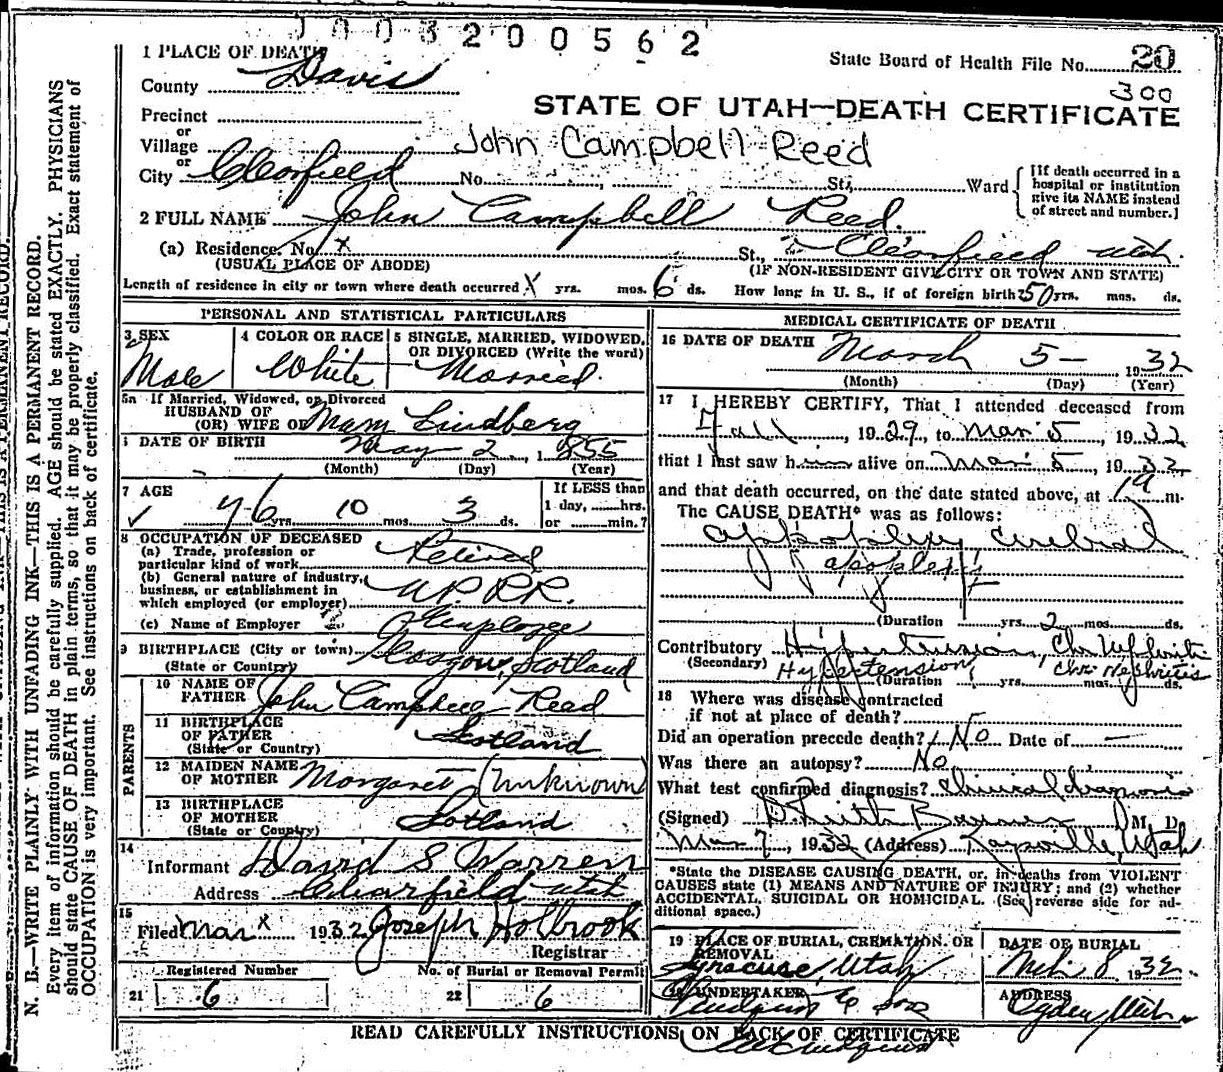 1003200562
1 PLACE OF DEATH
State Board of Health File No. 20
300
County Davis
STATE OF UTAH—DEATH CERTIFICATE
Precinct
or
Village
John Campbell Reed
or
City Clearfield No. St. Ward
[If death occurred in a hospital or institution give its NAME instead of street and number.]
2 FULL NAME John Campbell Reed.
(a) Residence. No. x St., Clearfield Utah.
(USUAL PLACE OF ABODE) (IF NON-RESIDENT GIVE CITY OR TOWN AND STATE)
Length of residence in city or town where death occurred X yrs. mos. 6 ds. How long in U. S., if of foreign birth? 50 yrs. mos. ds.
PERSONAL AND STATISTICAL PARTICULARS
3 SEX
Male
4 COLOR OR RACE
White
5 SINGLE, MARRIED, WIDOWED,
OR DIVORCED (Write the word)
Married.
5a If Married, Widowed, or Divorced
HUSBAND OF
(OR) WIFE OF Mary Lindberg
DATE OF BIRTH May 2, 1855
(Month) (Day) (Year)
7 AGE
76 yrs. 10 mos. 3 ds.
If LESS than
1 day, hrs.
or min.?
8 OCCUPATION OF DECEASED
(a) Trade, profession or
particular kind of work Retired
(b) General nature of industry,
business, or establishment in
which employed (or employer) U.P.R.R.
(c) Name of Employer Employee
9 BIRTHPLACE (City or town) Glasgow, Scotland
(State or Country)
PARENTS
10 NAME OF
FATHER John Campbell Reed
11 BIRTHPLACE
OF FATHER Scotland
(State or Country)
12 MAIDEN NAME
OF MOTHER Margaret (Unknown)
13 BIRTHPLACE
OF MOTHER Scotland
(State or Country)
14
Informant David S Warren
Address Clearfield Utah
15
Filed Mar x 1932 Joseph Holbrook
Registrar
Registered Number No. of Burial or Removal Permit
21 6 22 6
MEDICAL CERTIFICATE OF DEATH
16 DATE OF DEATH March 5 - 1932
(Month) (Day) (Year)
17 I HEREBY CERTIFY, That I attended deceased from
Fall, 1929, to Mar 5, 1932
that I last saw him alive on Mar 5, 1932
and that death occurred, on the date stated above, at m.
The CAUSE DEATH* was as follows:
appoplexy cerebral
apoplexy
(Duration yrs. 2 mos. ds.
Contributory Hypertension, Chr Nephritis
(Secondary) Hypertension, Chr. Nephritis
(Duration yrs. mos. ds.
18 Where was disease contracted
if not at place of death?
Did an operation precede death? No Date of —
Was there an autopsy? No
What test confirmed diagnosis? Clinical diagnosis
(Signed) M. D.
Mar 7, 1932 (Address) Kaysville, Utah
*State the DISEASE CAUSING DEATH, or, in deaths from VIOLENT
CAUSES state (1) MEANS AND NATURE OF INJURY; and (2) whether
ACCIDENTAL, SUICIDAL OR HOMICIDAL. (See reverse side for ad-
ditional space.)
19 PLACE OF BURIAL, CREMATION, OR
REMOVAL
Syracuse, Utah
DATE OF BURIAL
Mch. 8 1932
20 UNDERTAKER
& sons
ADDRESS
Ogden, Utah
READ CAREFULLY INSTRUCTIONS ON BACK OF CERTIFICATE
N. B.—WRITE PLAINLY WITH UNFADING INK—THIS IS A PERMANENT RECORD.
Every item of information should be carefully supplied. AGE should be stated EXACTLY. PHYSICIANS
should state CAUSE OF DEATH in plain terms, so that it may be properly classified. Exact statement of
OCCUPATION is very important. See instructions on back of certificate.